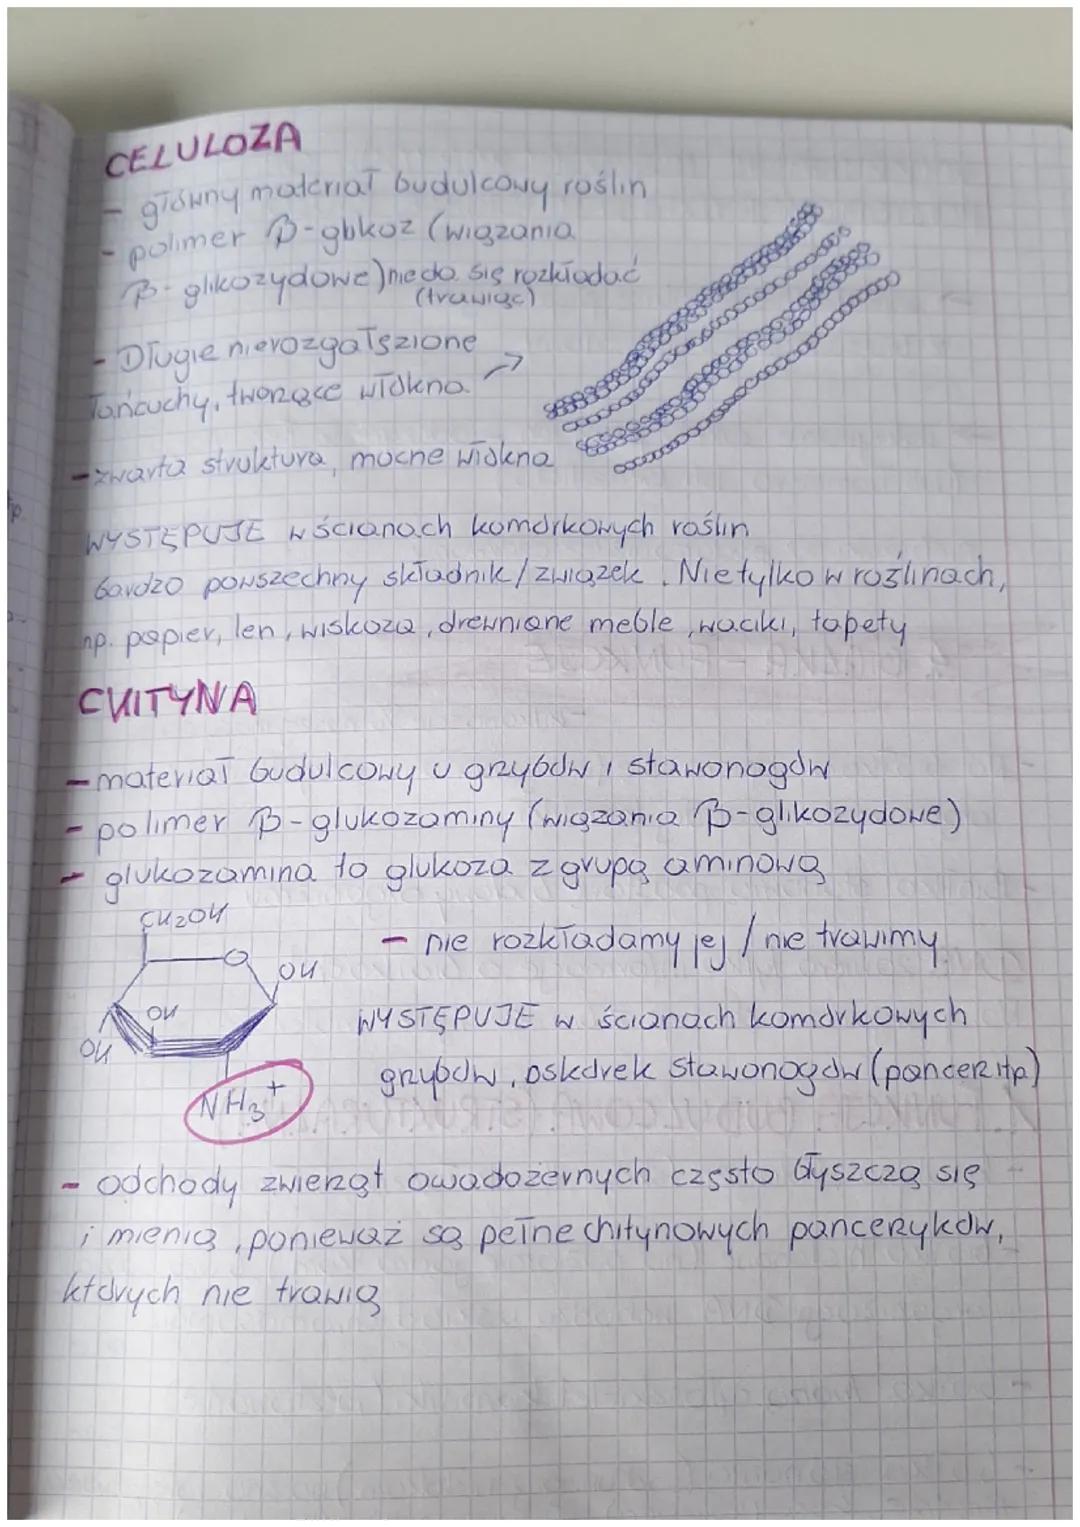 CELULOZA
- główny materiał budulcowy roślin
- polimer β-glukoz (wiązania
β-glikozydowe) nie da się rozkładać
(trawiąc)
- Długie nierozgałęzione
łańcuchy, tworzące włókna →
- zwarta struktura, mocne włókna
WYSTĘPUJE w ścianach komórkowych roślin
bardzo powszechny składnik/związek. Nie tylko w roślinach,
np. papier, len, wiskoza, drewniane meble, waciki, tapety
CHITYNA
- materiał budulcowy u grzybów i stawonogów
- polimer β-glukozaminy (wiązania β-glikozydowe)
- glukozamina to glukoza z grupą aminową
CH2OH
- nie rozkładamy jej / nie trawimy
O
OH
OH
OH
WYSTĘPUJE w ścianach komórkowych
grzybów, oskórek stawonogów (pancerz itp)
NH3+
- odchody zwierząt owadożernych często błyszczą się
i mienią, ponieważ są pełne chitynowych pancerzyków,
których nie trawią